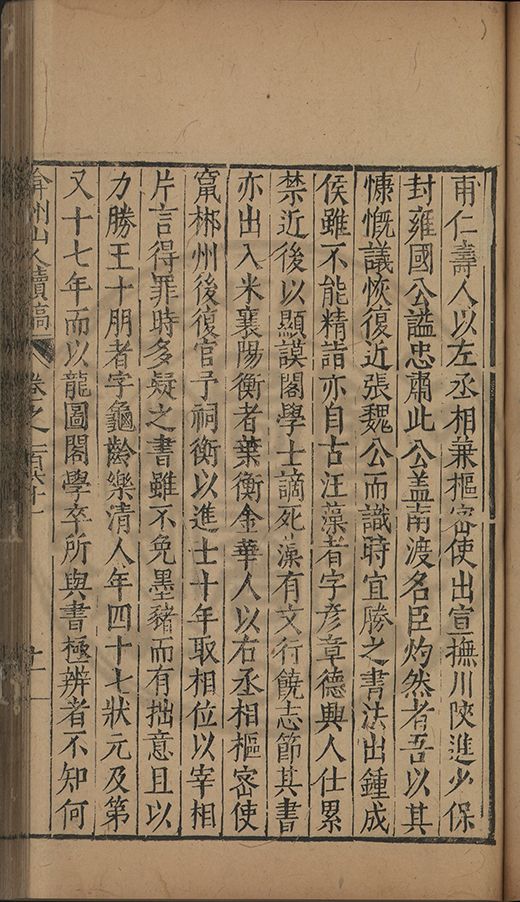 甫仁壽人以左丞相兼樞密使出宣撫川陝進少保
封雍國公謚忠肅此公盖南渡名臣灼然者吾以其
慷慨議恢復近張魏公而識時宜勝之書法出鍾成
侯雖不能精詣亦自古汪藻者字彥章德興人仕累
禁近後以顯謨閣學士謫死藻有文行饒志節其書
亦出入米襄陽衡者葉衡金華人以右丞相樞密使
竄郴州後復官予祠衡以進士十年取相位以宰相
片言得罪時多疑之書雖不免墨豬而有拙意且以
力勝王十朋者字龜齡樂清人年四十七狀元及第
又十七年而以龍圖閣學卒所與書極辨者不知何
弇州山人續稿 卷之一百六十一